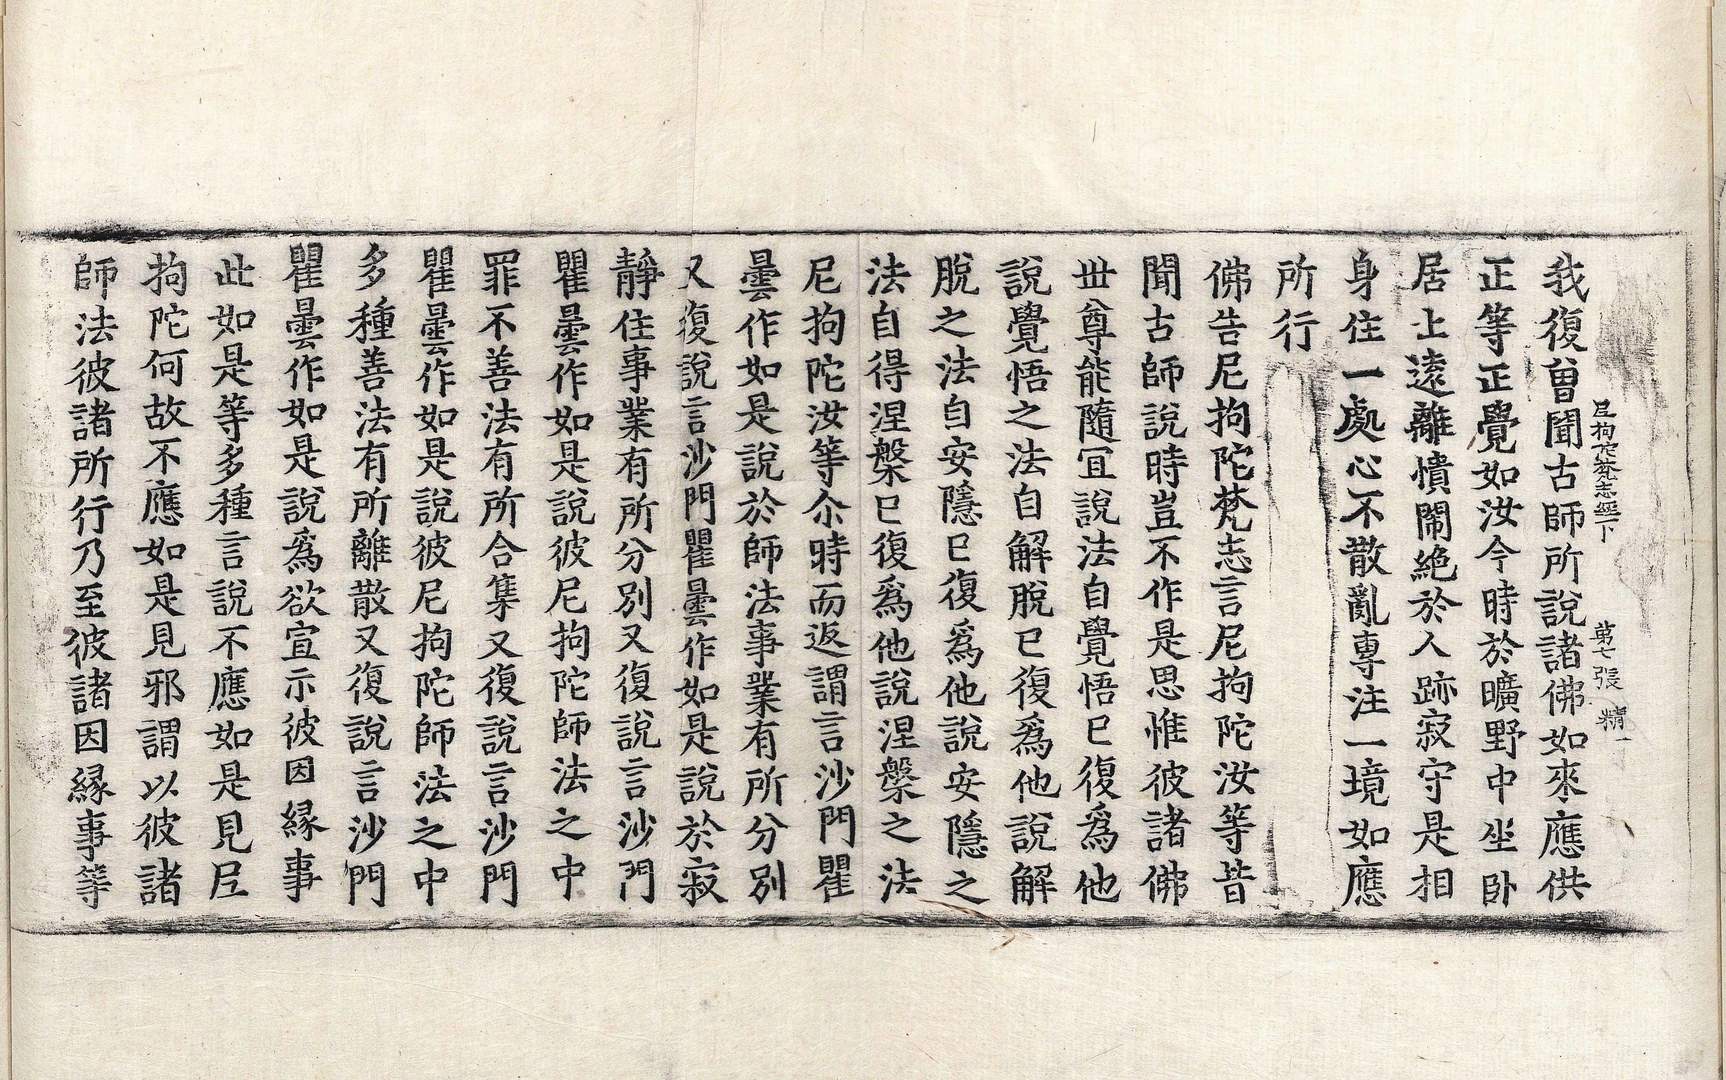 尼拘陀梵志經下　第七張　精
我復曾聞古師所說諸佛如來應供
正等正覺如汝今時於曠野中坐卧
居止遠離憒閙絶於人跡寂守是相
身住一處心不散亂專注一境如應
所行
佛告尼拘陀梵志言尼拘陀汝等昔
聞古師說時豈不作是思惟彼諸佛
丗尊能隨冝說法自覺悟已復爲他
說覺悟之法自解脫已復爲他說解
脫之法自安隱已復爲他說安隱之
法自得涅槃已復爲他說涅槃之法
尼拘陀汝等尒時而返謂言沙門瞿
曇作如是說於師法事業有所分別
又復說言沙門瞿曇作如是說於寂
靜住事業有所分別又復說言沙門
瞿曇作如是說彼尼拘陀師法之中
罪不善法有所合集又復說言沙門
瞿曇作如是說彼尼拘陀師法之中
多種善法有所離散又復說言沙門
瞿曇作如是說爲欲宣示彼因縁事
此如是等多種言說不應如是見尼
拘陀何故不應如是見邪謂以彼諸
師法彼諸所行乃至彼諸因縁事等